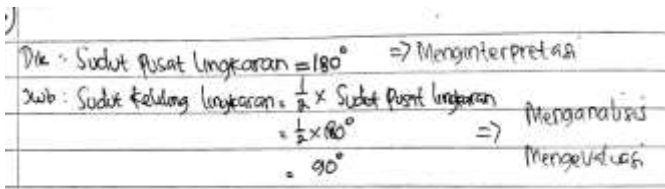 Dik : Sudut Pusat lingkaran = 180° => Menginterpretasi
Jwb : Sudut keliling lingkaran = 1/2 × Sudut Pusat lingkaran
= 1/2 × 180° => Menganalisis
= 90° Mengevaluasi